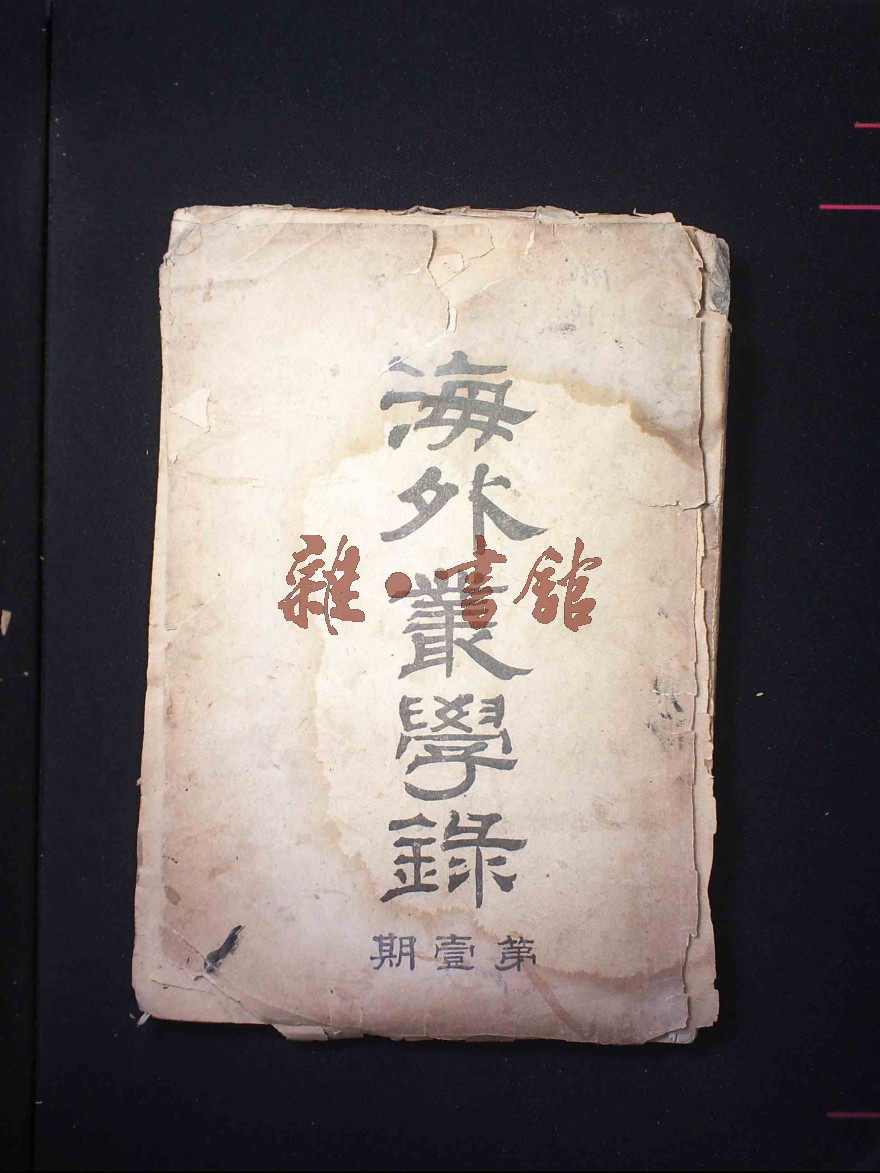 海外叢學錄
第壹期
雜·書館